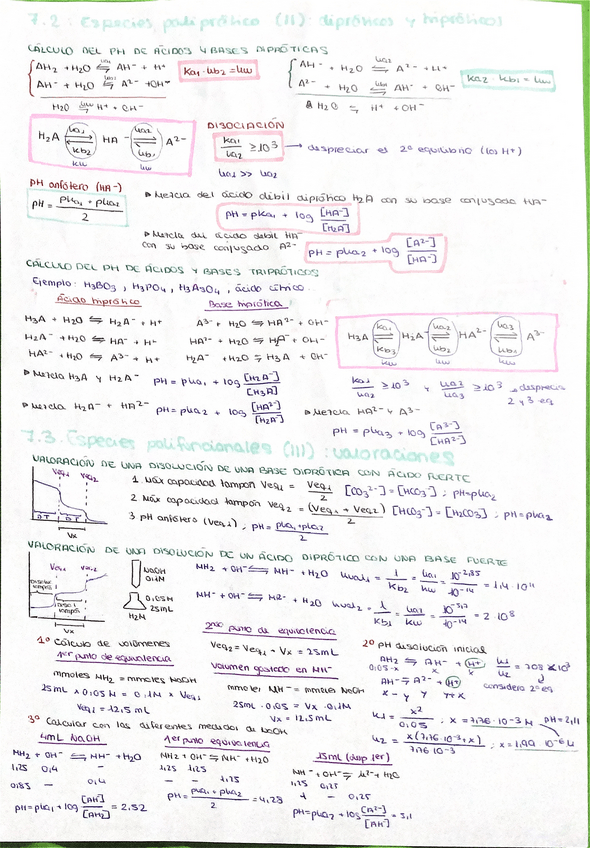 7.2: Especies poliprótico (II): dipróticos y tripróticos
CÁLCULO DEL PH DE ÁCIDOS Y BASES DIPRÓTICAS
AH2 + H2O ⇌ AH- + H+
Ka1 · Kb2 = Kw
AH- + H2O ⇌ A2- + H+
Ka2 · Kb1 = Kw
AH- + H2O ⇌ A2- + OH-
A2- + H2O ⇌ AH- + OH-
H2O ⇌ H+ + OH-
H2O ⇌ H+ + OH-
H2A Ka1 Kb2 Kw HA- Ka2 Kb1 Kw A2-
DISOCIACIÓN
Ka1/Ka2 ≥ 10^3 → despreciar el 2º equilibrio (los H+)
Ka1 >> Ka2
pH anfótero (HA-)
pH = pKa1 + pKa2 / 2
Mezcla del ácido débil diprótico H2A con su base conjugada HA-
pH = pKa1 + log [HA-]/[H2A]
Mezcla del ácido débil HA-
con su base conjugado A2-
pH = pKa2 + log [A2-]/[HA-]
CÁLCULO DEL PH DE ÁCIDOS Y BASES TRIPRÓTICOS
Ejemplo: H3BO3, H3PO4, H3AsO4, ácido cítrico
Ácido triprótico
Base triprótica
H3A + H2O ⇌ H2A- + H+
A3- + H2O ⇌ HA2- + OH-
H2A- + H2O ⇌ HA- + H+
HA2- + H2O ⇌ HA- + OH-
HA2- + H2O ⇌ A3- + H+
H2A- + H2O ⇌ H3A + OH-
H3A Ka1 Kb3 Kw H2A- Ka2 Kb2 Kw HA2- Ka3 Kb1 Kw A3-
Mezcla H3A y H2A- pH = pKa1 + log [H2A-]/[H3A]
Ka1/Ka2 ≥ 10^3 y Ka2/Ka3 ≥ 10^3 → desprecia
2 y 3 eq
Mezcla H2A- + HA2- pH = pKa2 + log [HA2-]/[H2A-]
Mezcla HA2- y A3-
pH = pKa3 + log [A3-]/[HA2-]
7.3. Especies polifuncionales (III): valoraciones
VALORACIÓN DE UNA DISOLUCIÓN DE UNA BASE DIPRÓTICA CON ÁCIDO FUERTE
Veq1 Veq2
DT DT
Vx
1. Máx capacidad tampón Veq1 = Veq1/2 [CO3 2-] = [HCO3-]; pH = pKa2
2 Máx capacidad tampón Veq2 = (Veq1 + Veq2)/2 [HCO3-] = [H2CO3]; pH = pKa2
3 pH anfótero (Veq1); pH = pKa1 + pKa2 / 2
VALORACIÓN DE UNA DISOLUCIÓN DE UN ÁCIDO DIPRÓTICO CON UNA BASE FUERTE
Veq1 Veq2
Vx
NaOH
0.1M
0,05M
25mL
H2M
MH2 + OH- ⇌ MH- + H2O Kval1 = 1/Kb2 = Ka1/Kw = 10^-2,85/10^-14 = 1,4 · 10^11
MH- + OH- ⇌ M2- + H2O Kval2 = 1/Kb1 = Ka2/Kw = 10^-5,7/10^-14 = 2 · 10^8
1º Cálculo de volúmenes
1er punto de equivalencia
mmoles MH2 = mmoles NaOH
25mL x 0.05M = 0,1M x Veq1
Veq1 = 12,5mL
2do punto de equivalencia
Veq2 = Veq1 + Vx = 25mL
Volumen gastado en MH-
mmoles MH- = mmoles NaOH
25mL · 0.05 = Vx · 0.1M
Vx = 12,5mL
2º pH disolución inicial
AH2 ⇌ AH- + H+
0,05-x x x
K1/K2 = 708 < 10^3
AH- ⇌ A2- + H+
considero 2º eq
x-y y y+x
K1 = x²/0,05; x = 7,76·10^-3 M pH = 2,11
K2 = x(7,76·10^-3+x)/7,76·10^-3; x = 1,99·10^-6 M
3º Calcular con las diferentes medidas de NaOH
4mL NaOH
MH2 + OH- ⇌ MH- + H2O
1,25 0,4 -
0,85 - 0,4
pH = pKa1 + log [AH-]/[AH2] = 2,52
1er pto equivalencia
MH2 + OH- ⇌ MH- + H2O
1,25 1,25
- - 1,25
pH = pKa1 + pKa2 / 2 = 4,28
15ml (disp ter)
MH- + OH- ⇌ M2- + H2O
1,25 0,25
1 - 0,25
pH = pKa2 + log [A2-]/[AH-] = 5,1